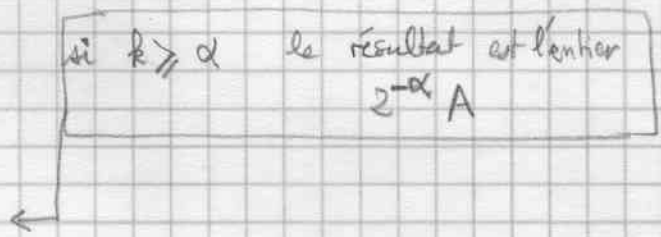 si k ⩾ α le résultat est l'entier
2^{-α} A